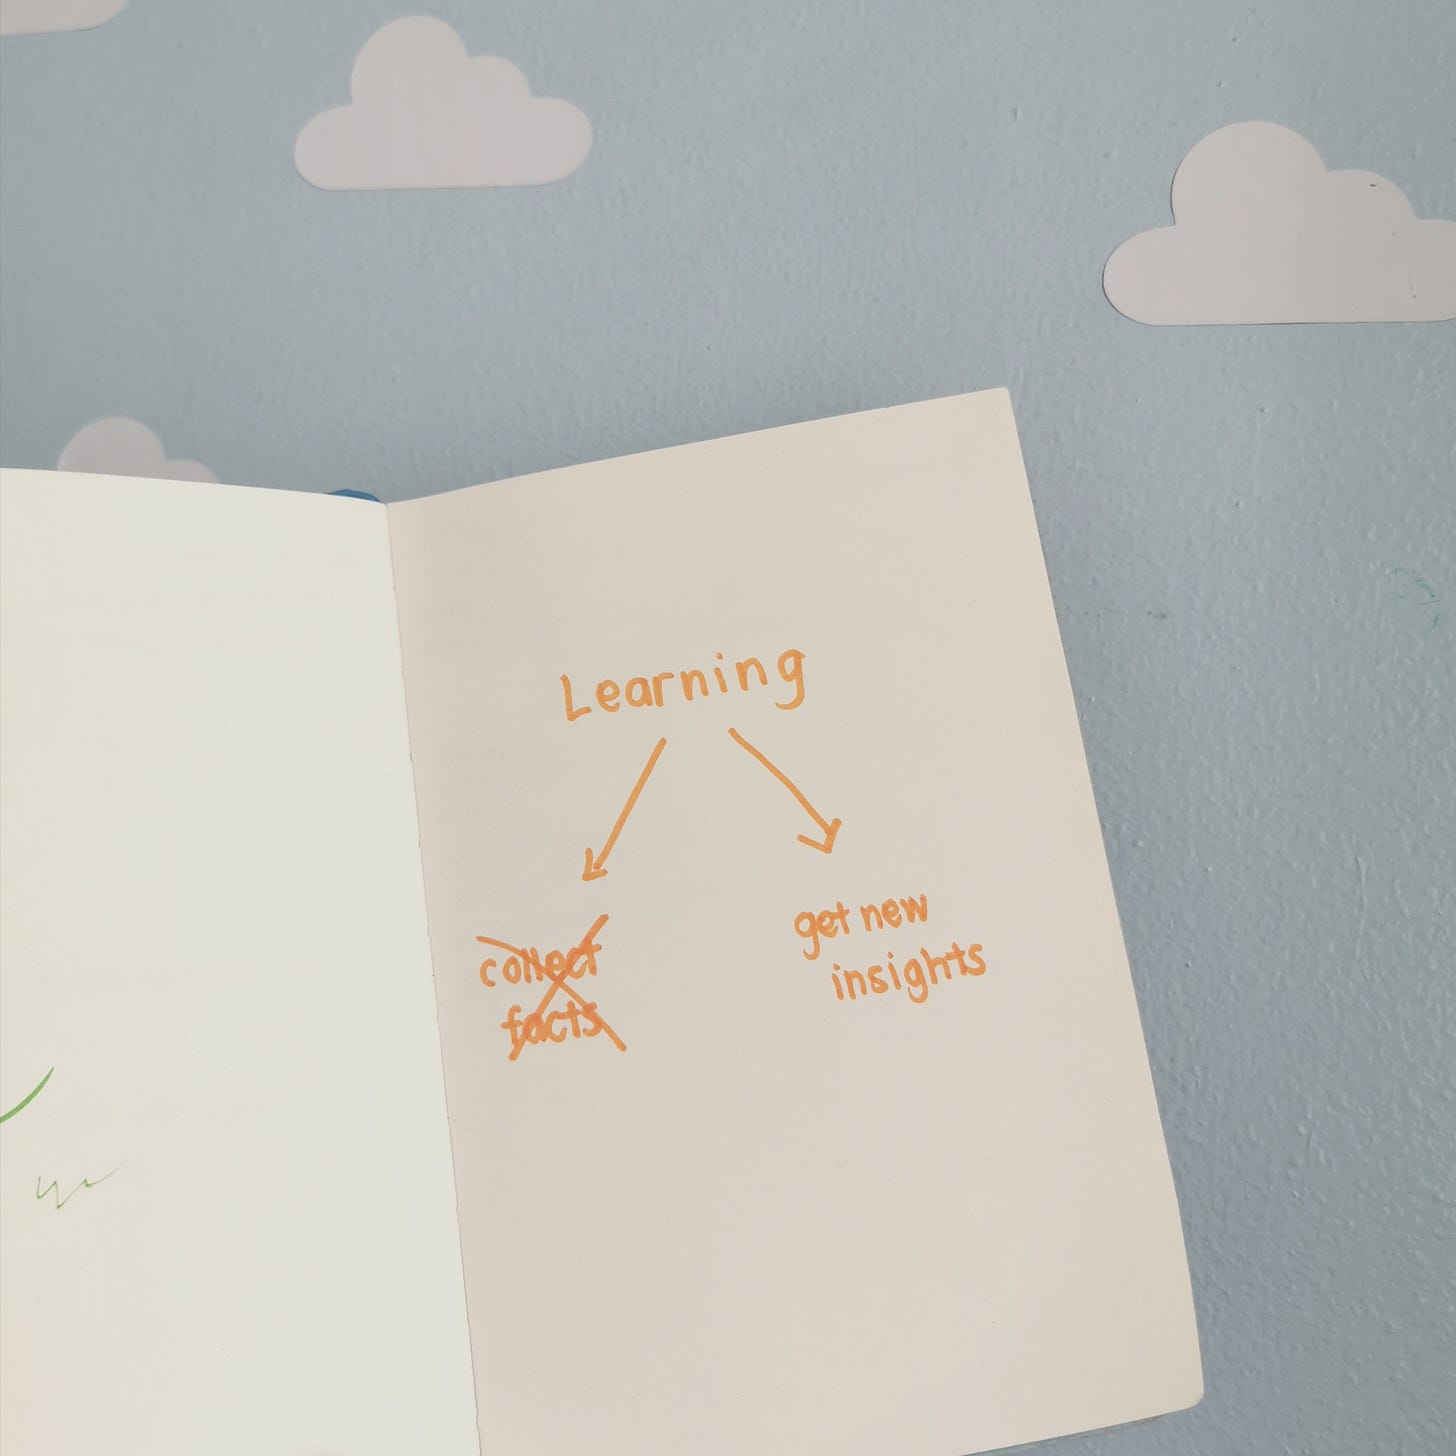 Learning
collect
facts
get new
insights